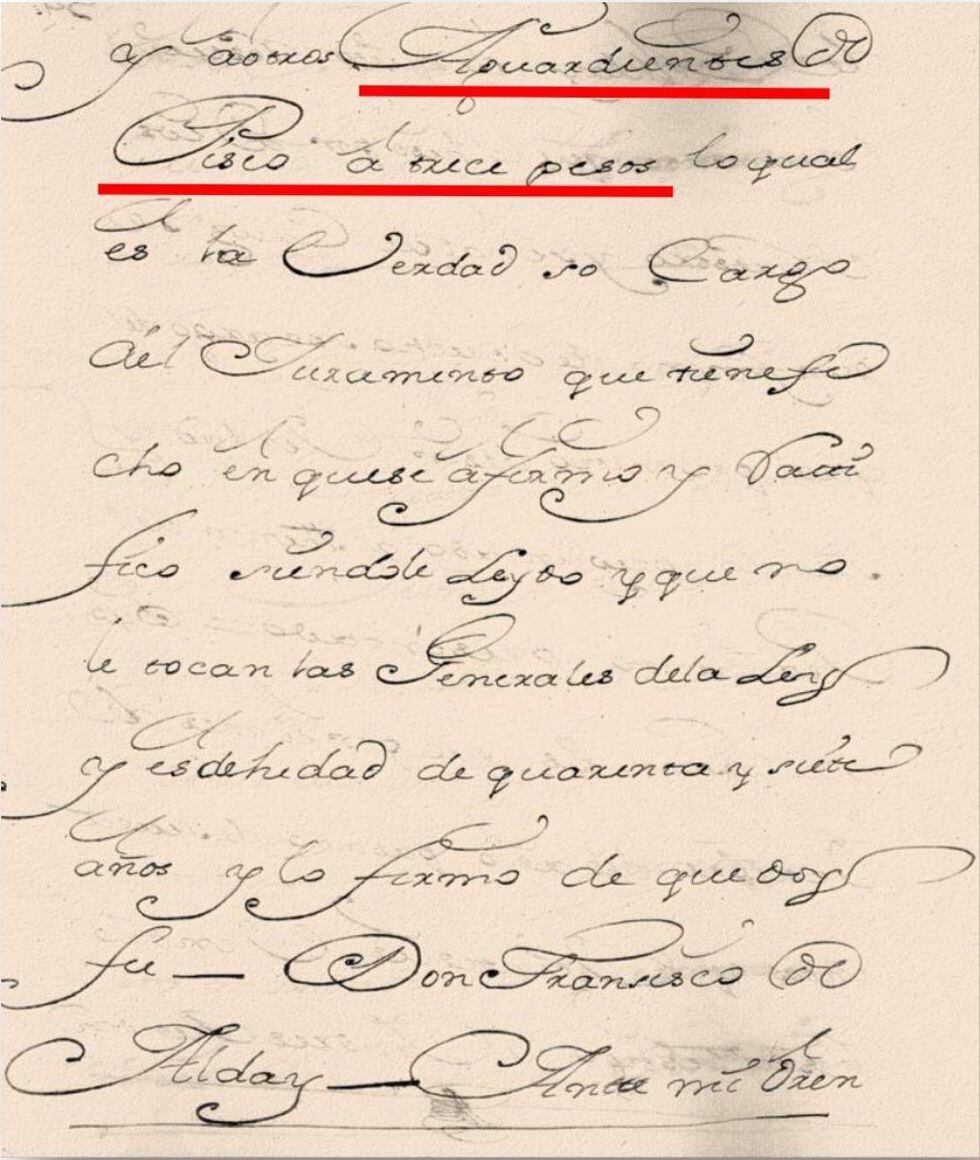 y aotros Aguardientes de
Pisco a trece pesos lo qual
es la Verdad so Cargo
del Juramento que tiene fe
cho en que se afirmo y Rati
fico siendole Leydo y que no
le tocan las Generales de la Ley
y es de hedad de quarenta y siete
años y lo firmo de que doy
fee — Don Francisco de
Alday — Ante mi Oren